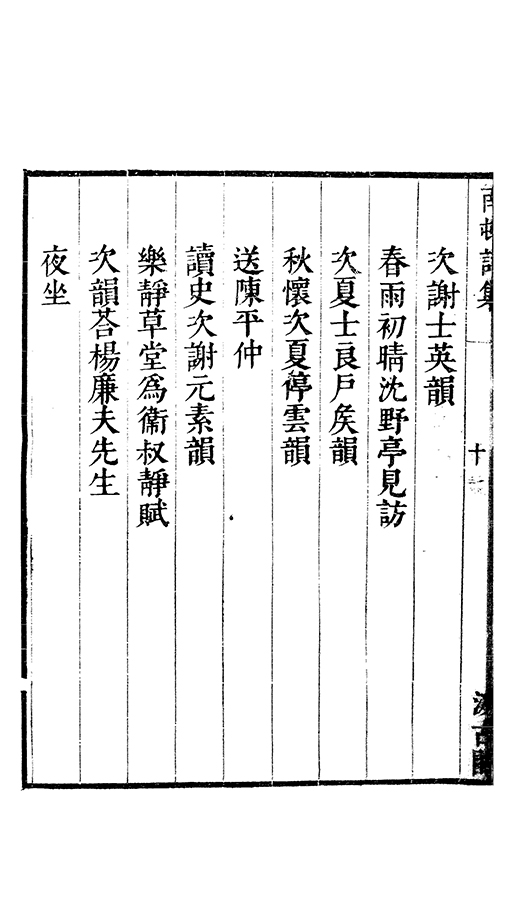 南邨詩集
十
汲古閣
次謝士英韻
春雨初晴沈野亭見訪
次夏士良戶矦韻
秋懷次夏停雲韻
送陳平仲
讀史次謝元素韻
樂靜草堂爲衞叔靜賦
次韻荅楊廉夫先生
夜坐